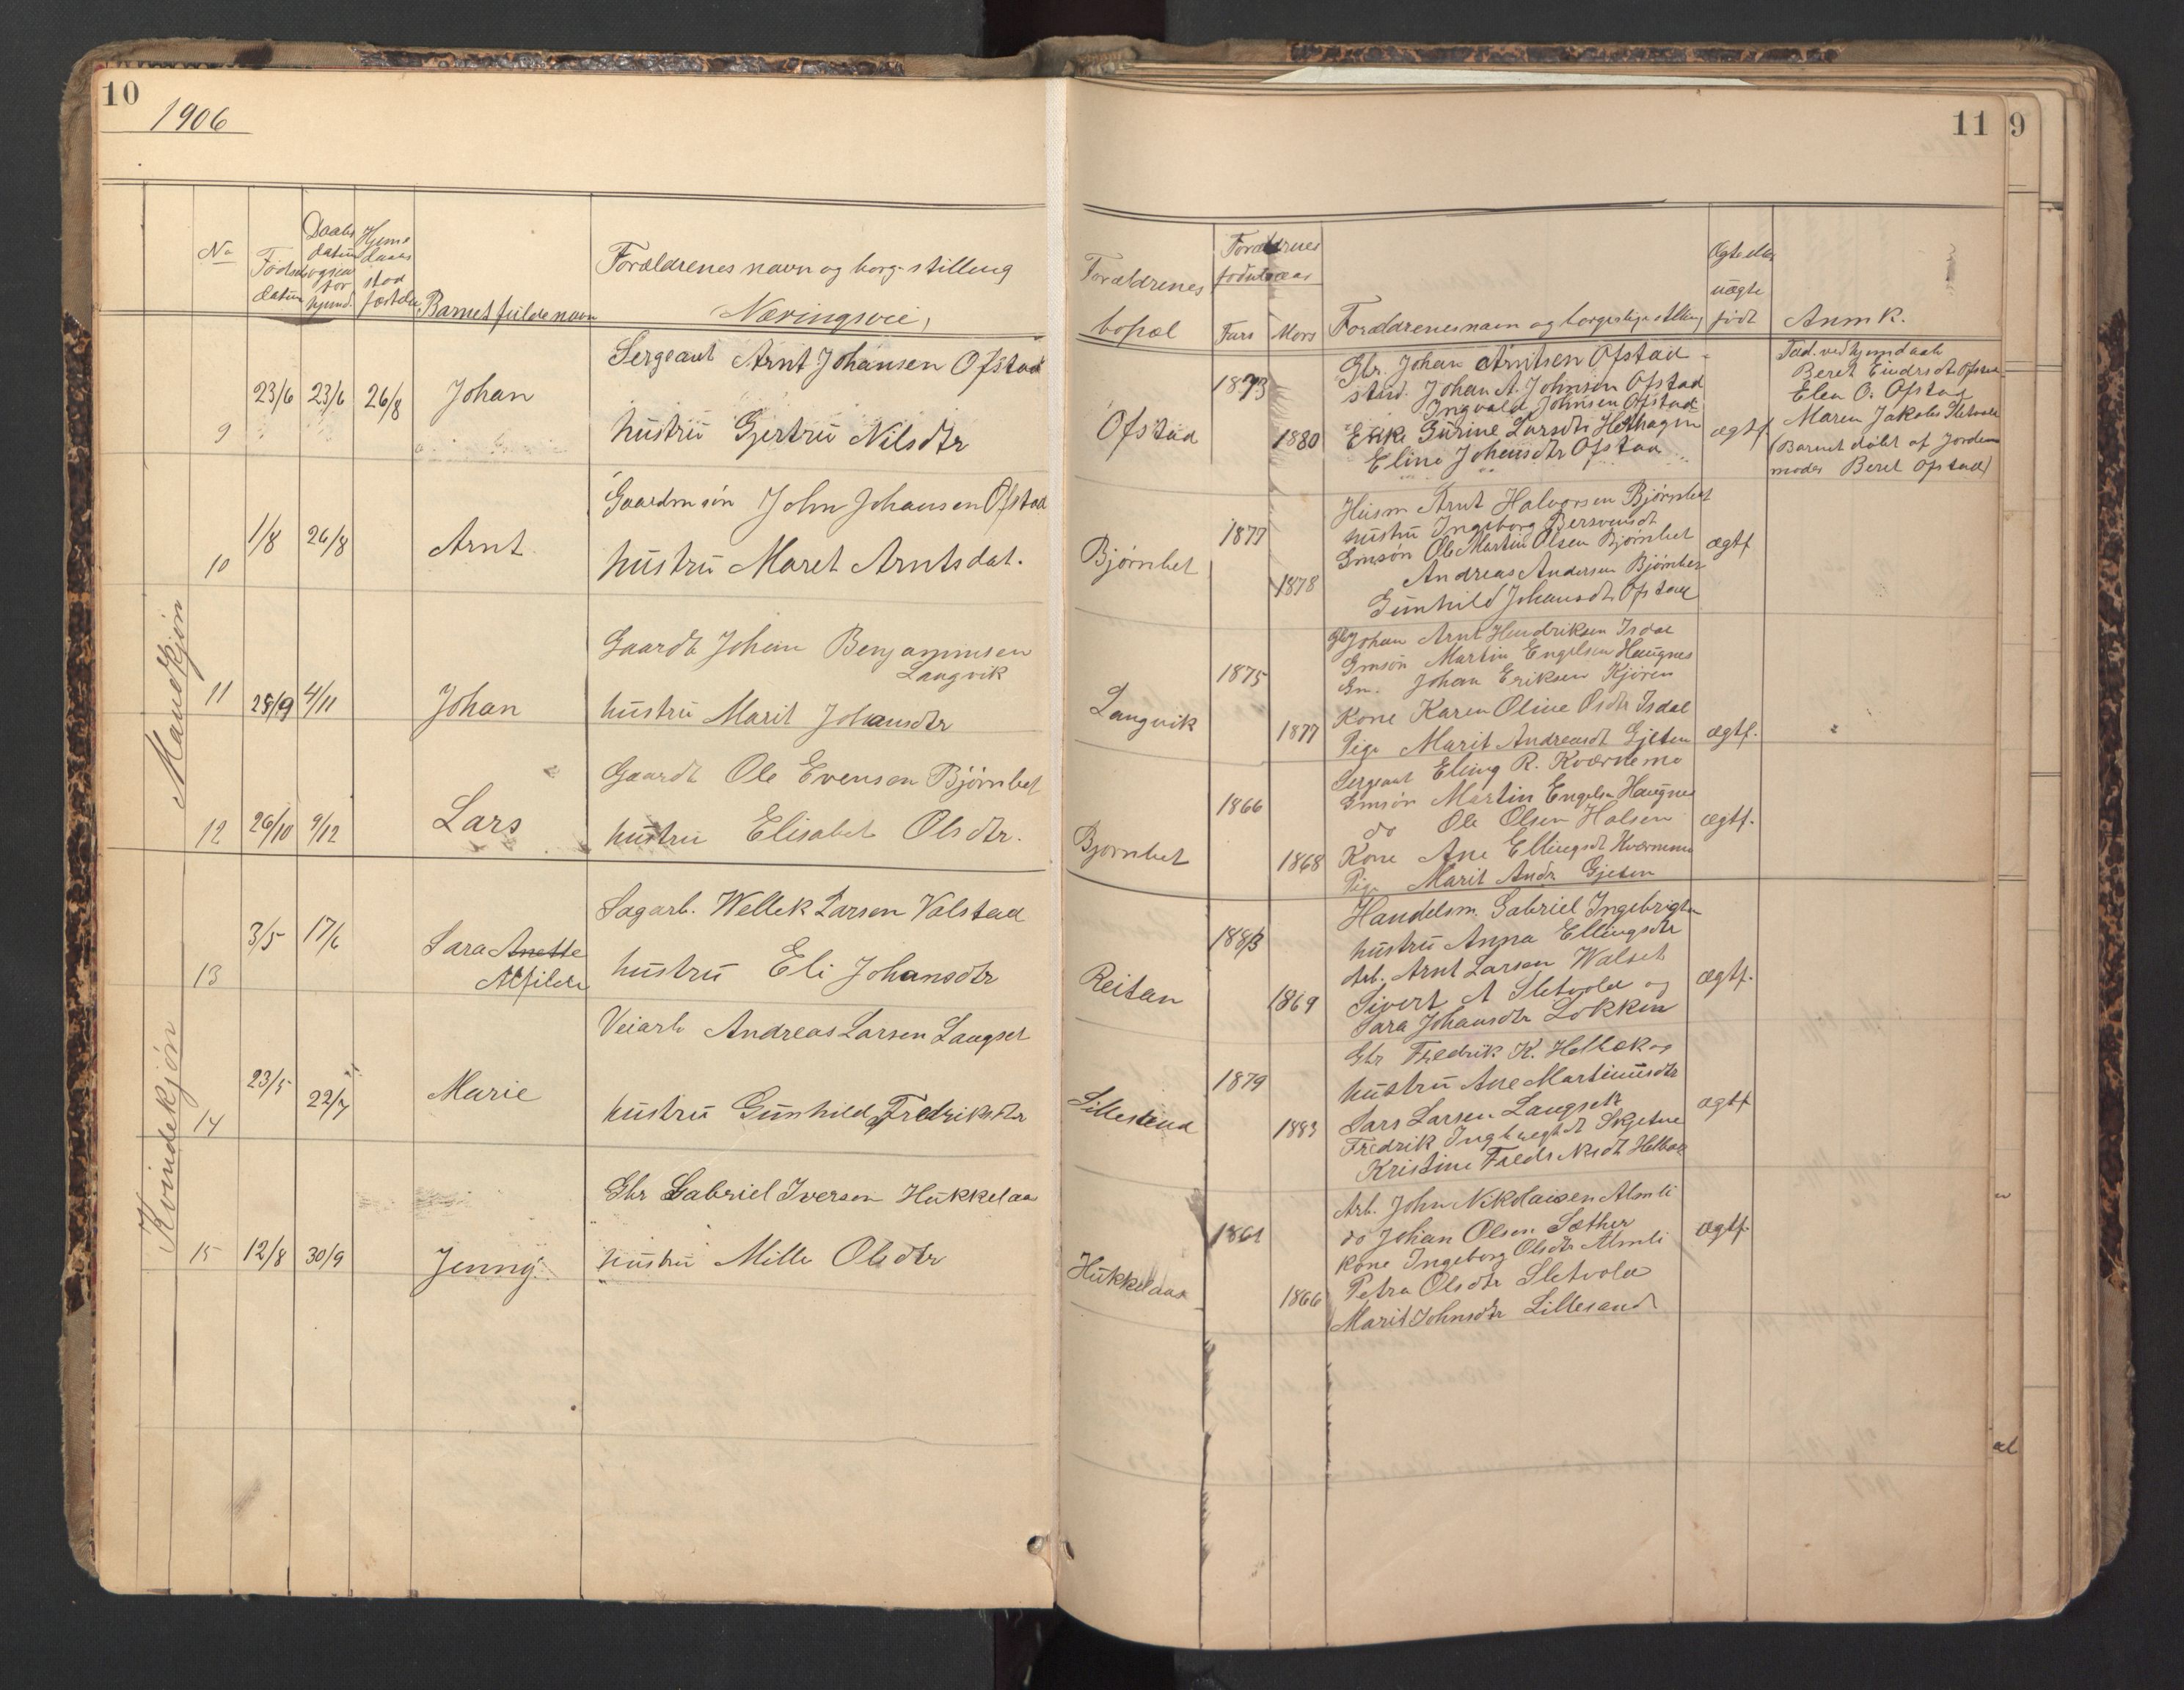 10
1906
No
Fødsels
datum
Daabs
datum
ogsaa
for
hjemd.
Hjemme
daabs
stad
fæstelse
Barnets fulde navn
Forældrenes navn og borg. stilling
Næringsvei,
Mandkjøn
9
23/6
23/6
26/8
Johan
Sergeant Arnt Johansen Ofstad
hustru Gjertru Nilsdtr
10
1/8
26/8
Arnt
Gaardmsøn John Johansen Ofstad
hustru Maret Arntsdat.
11
28/9
4/11
Johan
Gaardb Johan Benjaminsen
Langvik
hustru Marit Johansdtr
12
26/10
9/12
Lars
Gaardb Ole Evensen Bjørnbet
hustru Elisabet Olsdtr.
Kvindekjøn
13
3/5
17/6
Sara Anette
Alfilde
Sagarb. Wellek Larsen Valstad
hustru Eli Johansdtr
14
23/5
22/7
Marie
Veiarb Andreas Larsen Langset
hustru Gunhild Fredriksdtr
15
12/8
30/9
Jenny
Gbr Gabriel Iversen Hukkelaas
hustru Mille Olsdtr
11
9
Forældrenes
bopæl
Forældrenes
fødselsaar
Fars
Mors
Forældrenes navn og borgerlige stilling
Ægte eller
uægte
født
Anmk.
Ofstad
1873
1880
Gbr. Johan Arntsen Ofstad
stud. Johan A. Johnsen Ofstad
Ingvald Johnsen Ofstad
Enke Gurine Larsdtr Helhagen
Eline Johansdtr Ofstad
ægtf.
Fad. ved hjemdaab
Beret Eindrsdt Ofstad
Elen O. Ofstad
Maren Jakobs Sletvold
(Barnet døbt af Jordem
moder Beret Ofstad)
Bjørnbet
1877
1878
Husm Arnt Halvorsen Bjørnbet
hustru Ingeborg Bersvendt
Gmsøn Ole Martin Olsen Bjørnbet
Andreas Andersen Bjørnbet
Gunhild Johansdt Ofstad
ægtf
Langvik
1875
1877
Gbr Johan Arnt Hendriksen Isdal
Gmsøn Martin Engelsen Haugnes
Gm. Johan Eriksen Kjøren
Kone Karen Oline Olsdtr Isdal
Pige Marit Andreasdt Gjeten
ægtf.
Bjørnbet
1866
1868
Sergeant Eling R. Kværnemo
Gmsøn Martin Engelsen Haugnes
do Ole Olsen Holsen
Kone Ane Ellingsdt Kværnemo
Pige Marit Andr Gjeten
ægtf.
Reitan
1883
1869
Handelsm. Gabriel Ingebrigtsen
hustru Anna Ellingsdtr
Arb. Arnt Larsen Walset
Sivert A Sletvold og
Sara Johansdtr Løkken
ægtf.
Lillesand
1879
1883
Gbr Fredrik K. Helbak og
hustru Ane Martinusdtr
Lars Larsen Langseth
Kristine Fredriksdt Helbak
ægtf
Hukkelaas
1861
1866
Arb. John Nikolaisen Almli
do Johan Olsen Sæther
Kone Ingeborg Olsdtr Almli
Petra Olsdtr Sletvold
Marit Johnsdtr Lillesand
ægtf.